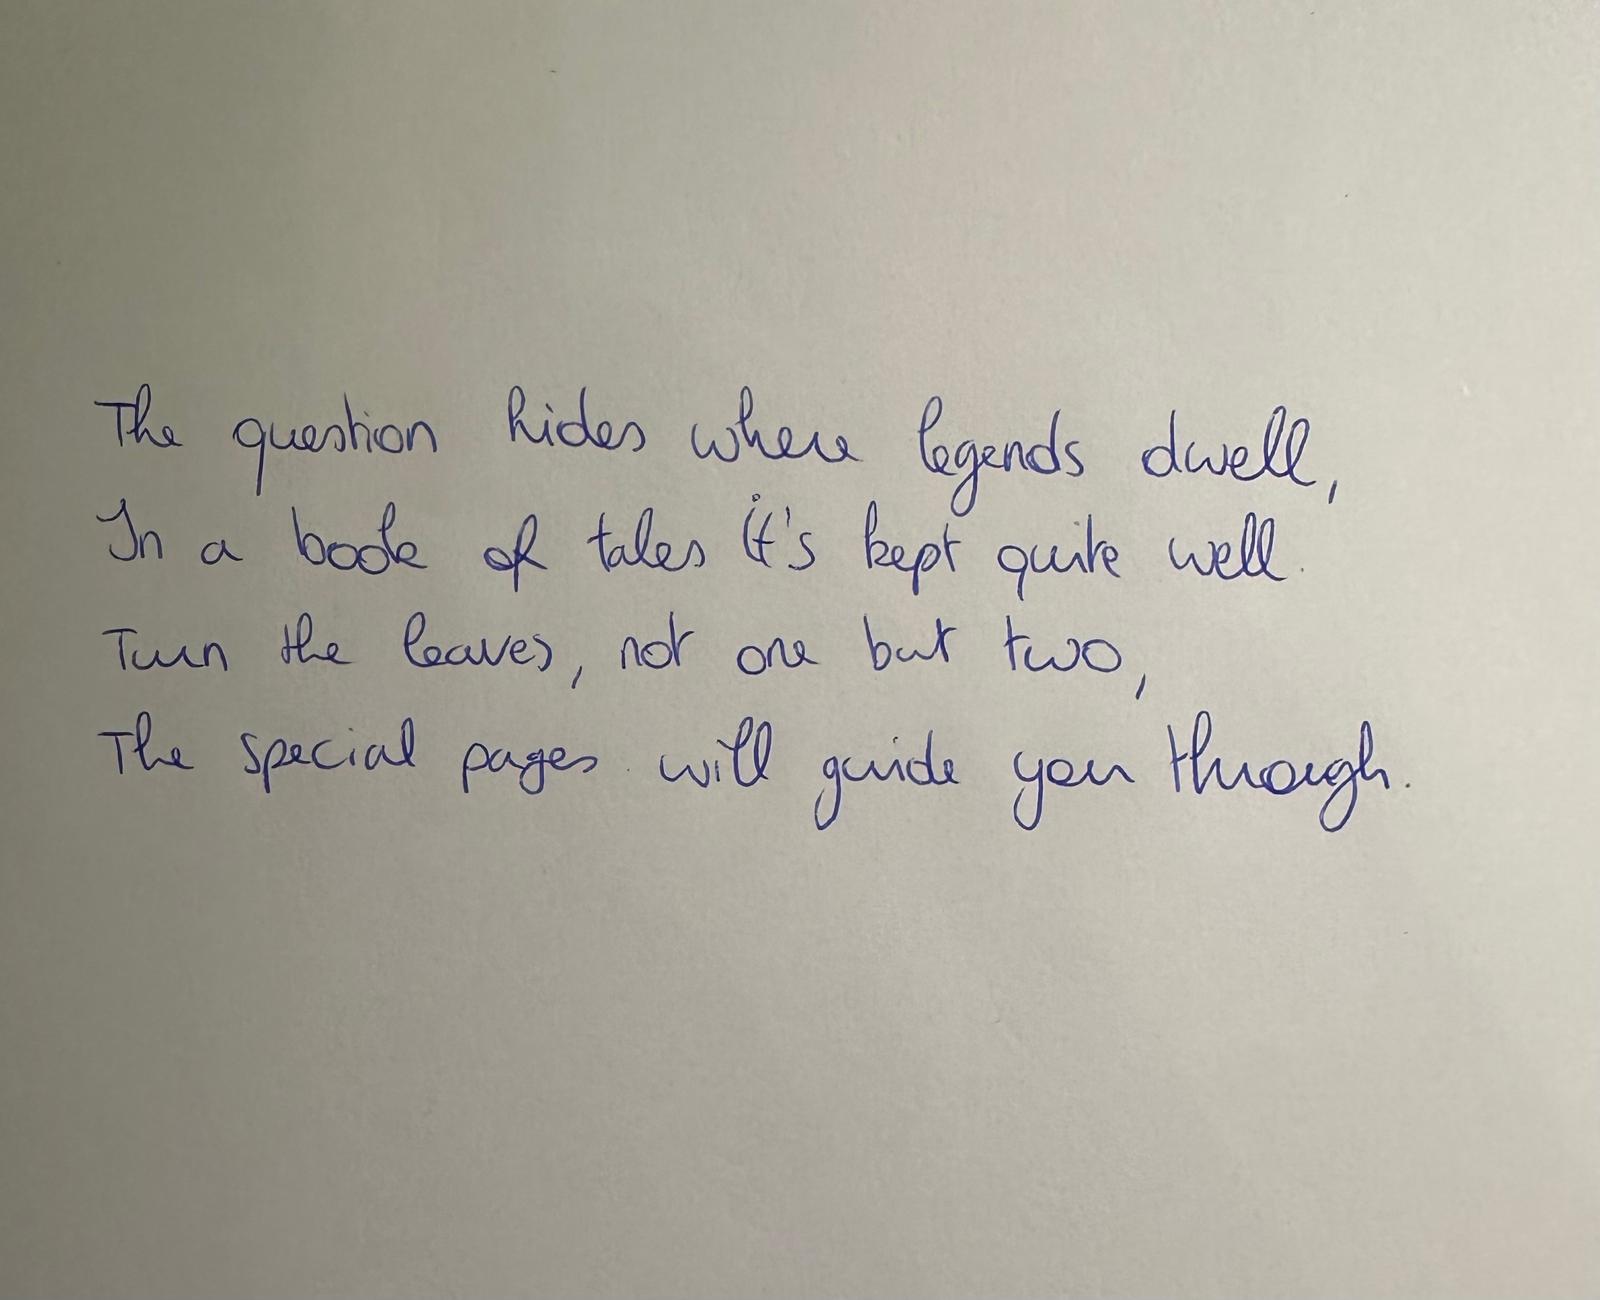 The question hides where legends dwell,
In a book of tales it's kept quite well.
Turn the leaves, not one but two,
The special pages will guide you through.